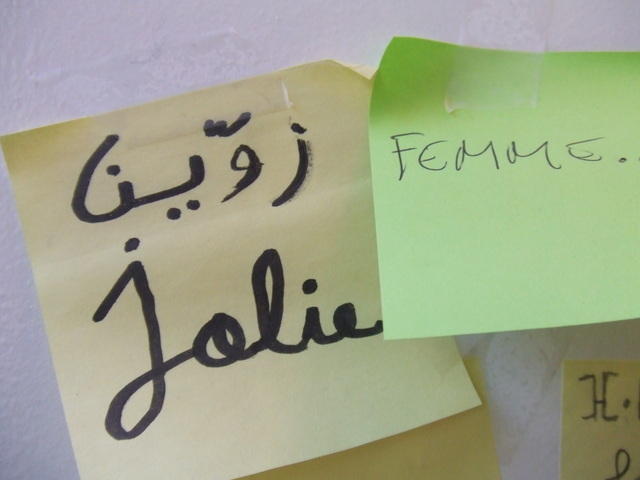 زوّينا
Jolie
FEMME..
H.